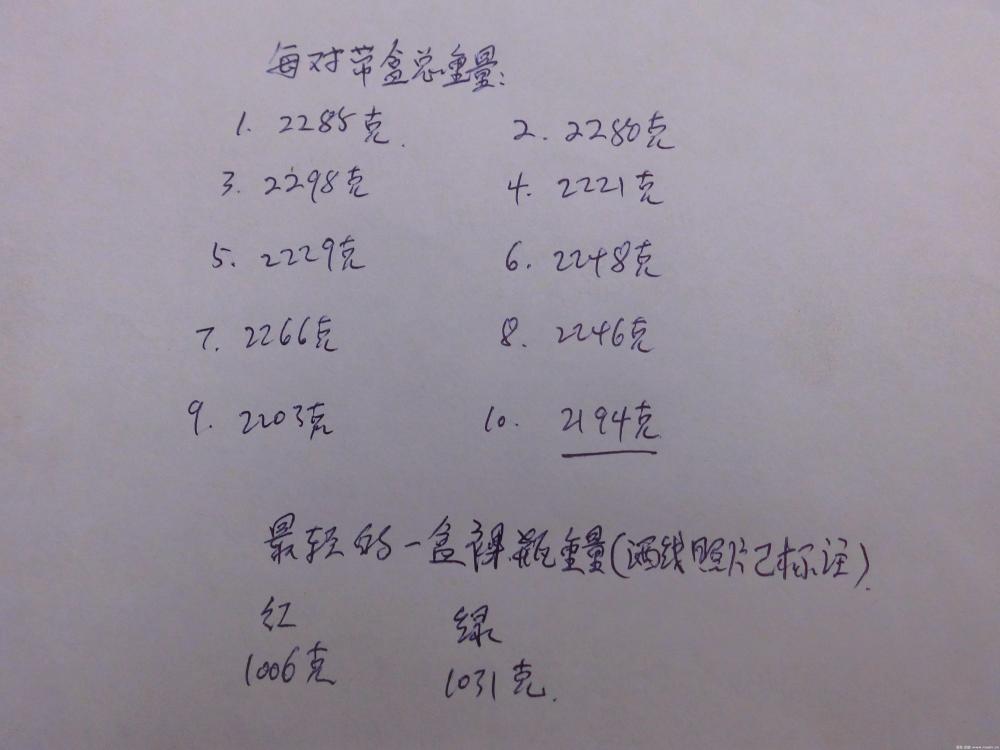 每对带盒总重量:
1. 2285克. 2. 2280克
3. 2298克 4. 2221克
5. 2229克 6. 2248克
7. 2266克 8. 2246克
9. 2203克 10. 2194克
最轻的一盒裸瓶重量(酒线照片已标注).
红 绿
1006克 1031克.